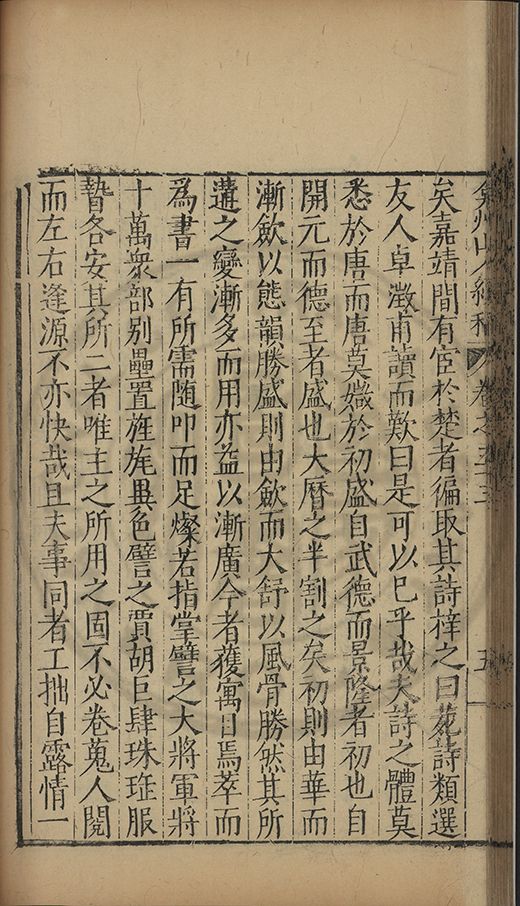 弇州山人續稿 卷之五十三 五
矣嘉靖間有宦於楚者徧取其詩梓之曰苑詩類選
友人卓澂甫讀而歎曰是可以已乎哉夫詩之體莫
悉於唐而唐莫媺於初盛自武德而景隆者初也自
開元而德至者盛也大曆之半割之矣初則由華而
漸歛以態韻勝盛則由歛而大舒以風骨勝然其所
遘之變漸多而用亦益以漸廣今者獲寓目焉萃而
為書一有所需随叩而足燦若指掌譬之大將軍將
十萬衆部别壘置旌旄異色譬之賈胡巨肆珠琲服
贄各安其所二者唯主之所用之固不必卷蒐人閱
而左右逢源不亦快哉且夫事同者工拙自露情一